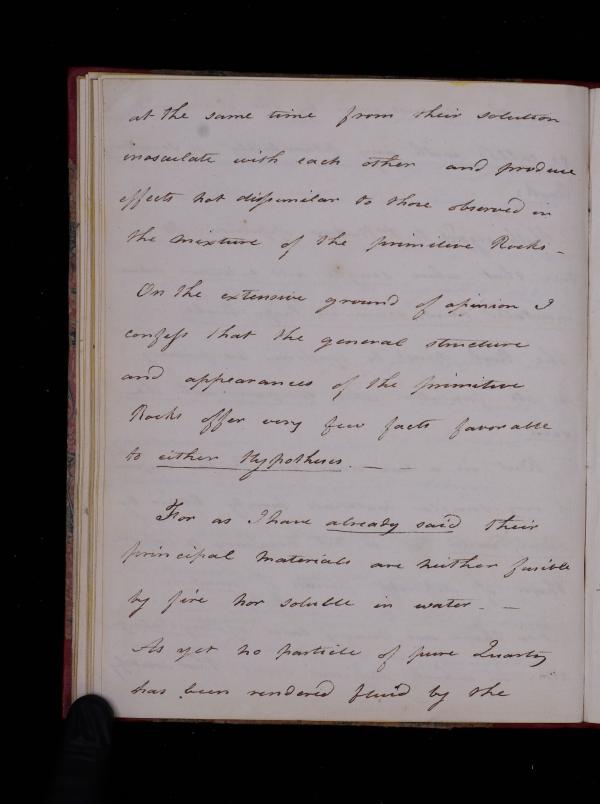 at the same time from their solution
inosculate with each other and produce
effects not dissimilar to those observed in
the mixture of the primitive Rocks –
On the extensive ground of opinion I
confess that the general structure
and appearances of the primitive
Rocks offer very few facts favorable
to either Hypotheses. — –
For as I have already said their
principal materials are neither fusible
by fire nor soluble in water – –
As yet no particle of pure Quartz
has been rendered fluid by the